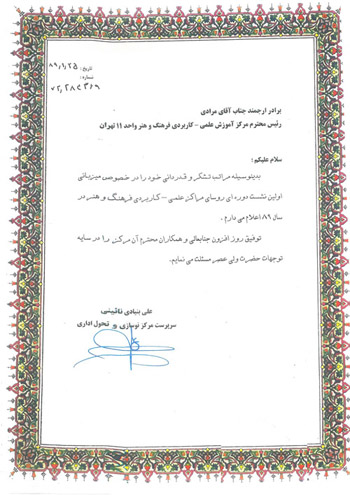 تاریخ : ۸۹،۱،۲۵
شماره :
۷۲،۲۸۴۳۶۹
برادر ارجمند جناب آقای مرادی
رئیس محترم مرکز آموزش علمی - کاربردی فرهنگ و هنر واحد ۱۱ تهران
سلام علیکم :
بدینوسیله مراتب تشکر و قدردانی خود را در خصوص میزبانی
اولین نشست دوره ای روسای مراکز علمی - کاربردی فرهنگ و هنر در
سال ۸۹ اعلام می دارم .
توفیق روز افزون جنابعالی و همکاران محترم آن مرکز را در سایه
توجهات حضرت ولی عصر مسئلت می نمایم.
علی بنیادی نائینی
سرپرست مرکز نوسازی و تحول اداری